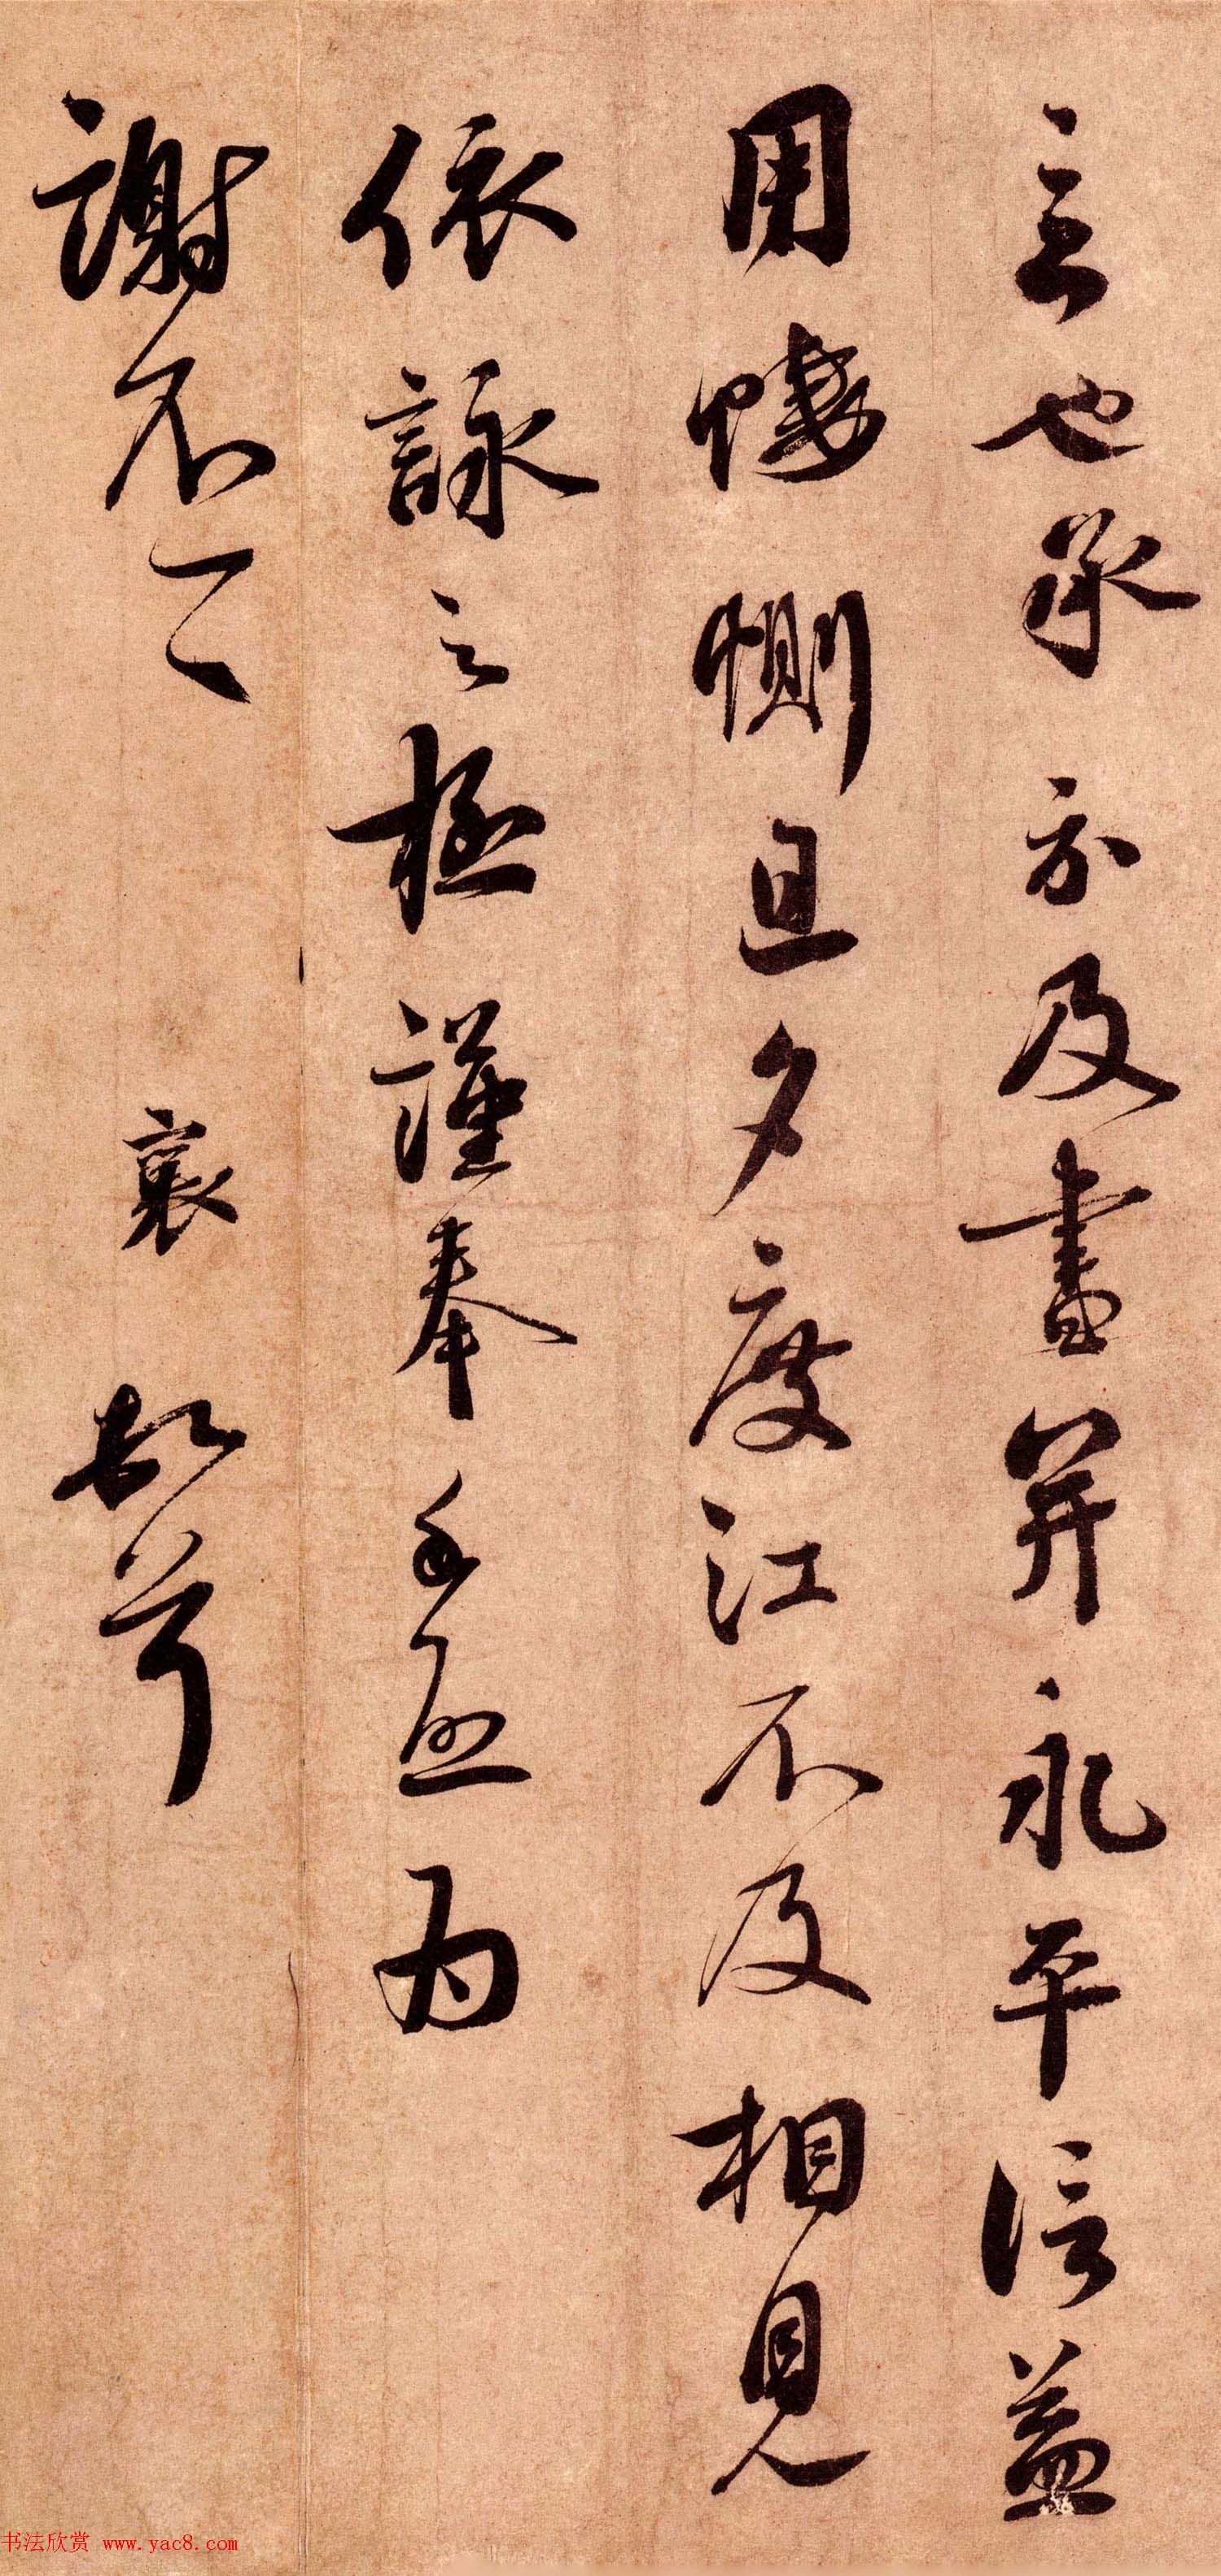 言也承示及書并永平信益
用悽惻旦夕度江不及相見
依詠之極謹奉手啟為
謝不一一
襄頓首
书法欣赏 www.yac8.com